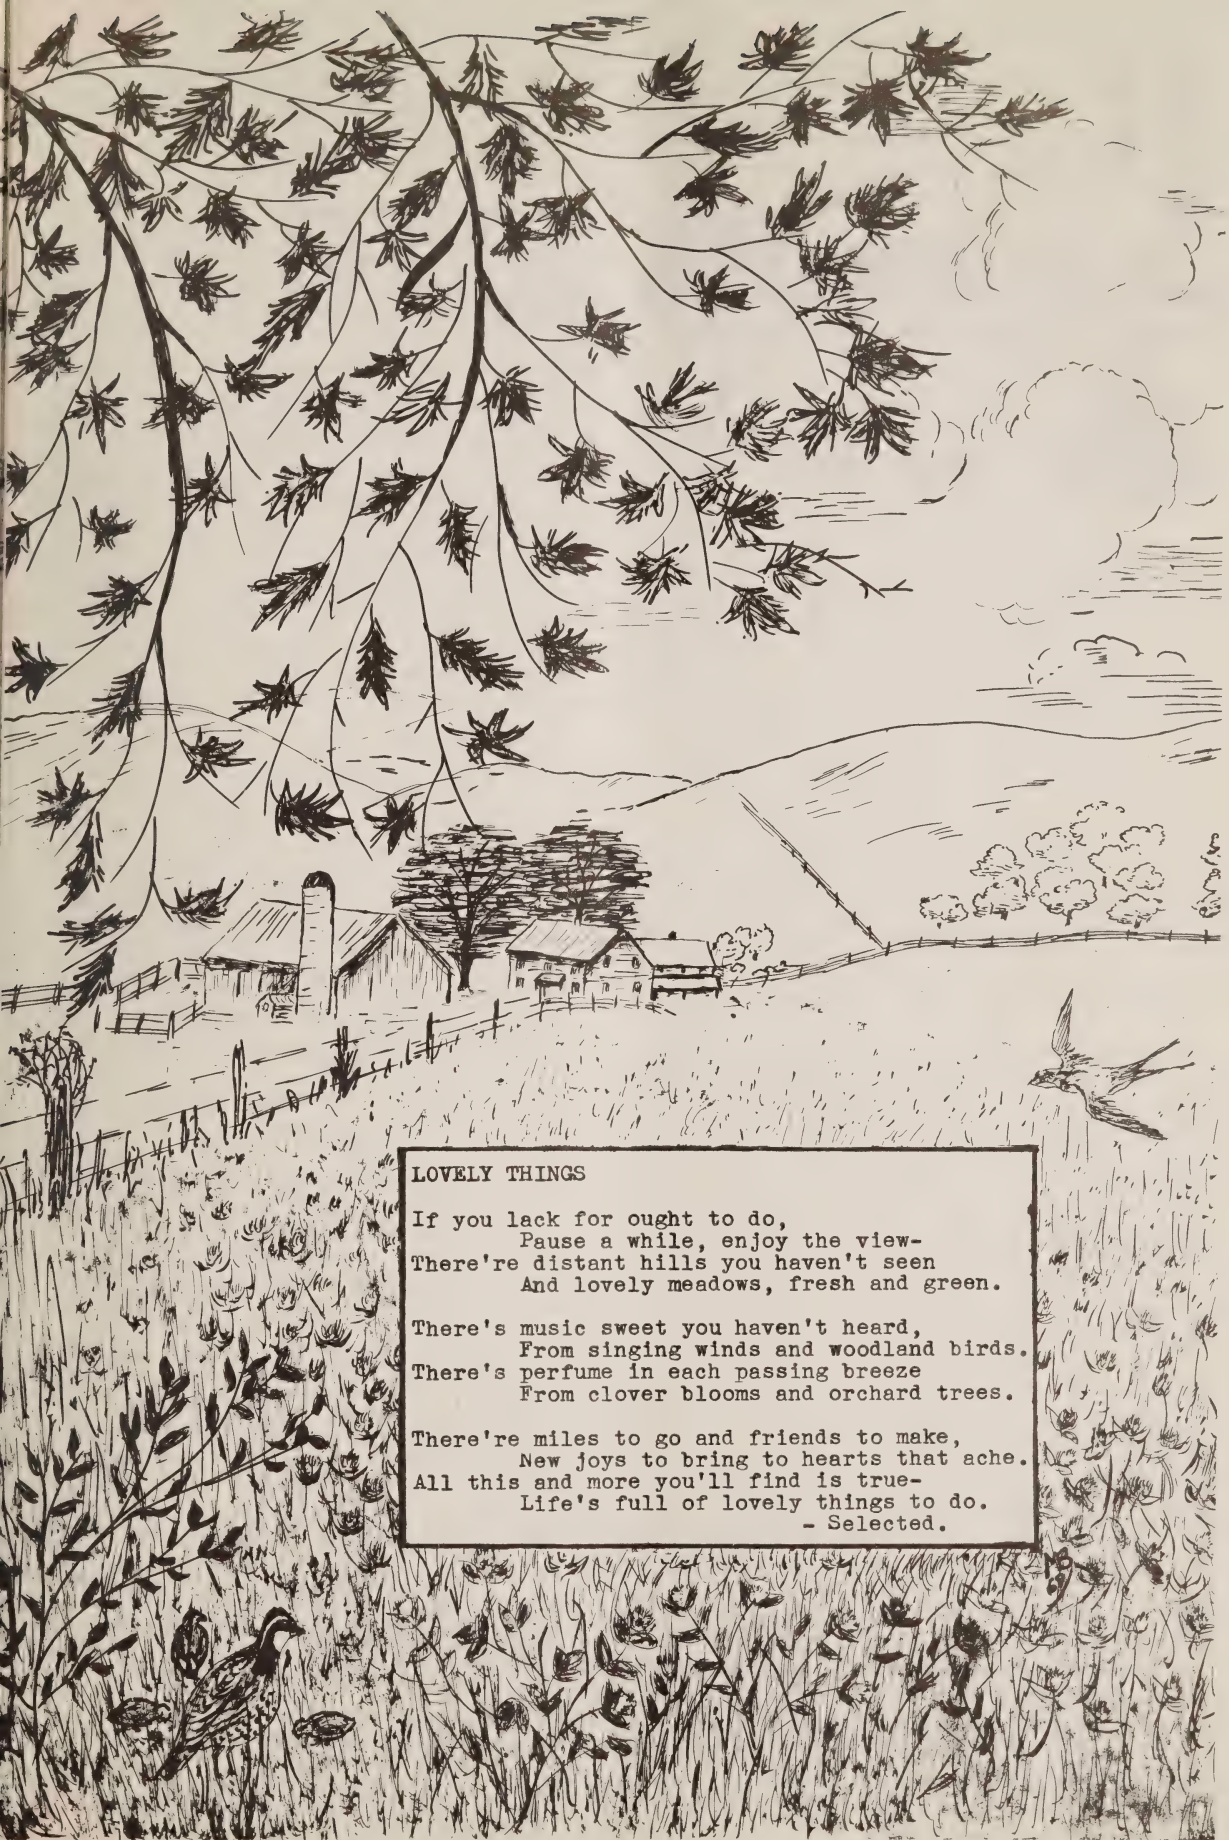 LOVELY THINGS
If you lack for ought to do,
Pause a while, enjoy the view-
There're distant hills you haven't seen
And lovely meadows, fresh and green.
There's music sweet you haven't heard,
From singing winds and woodland birds.
There's perfume in each passing breeze
From clover blooms and orchard trees.
There're miles to go and friends to make,
New joys to bring to hearts that ache.
All this and more you'll find is true-
Life's full of lovely things to do.
- Selected.